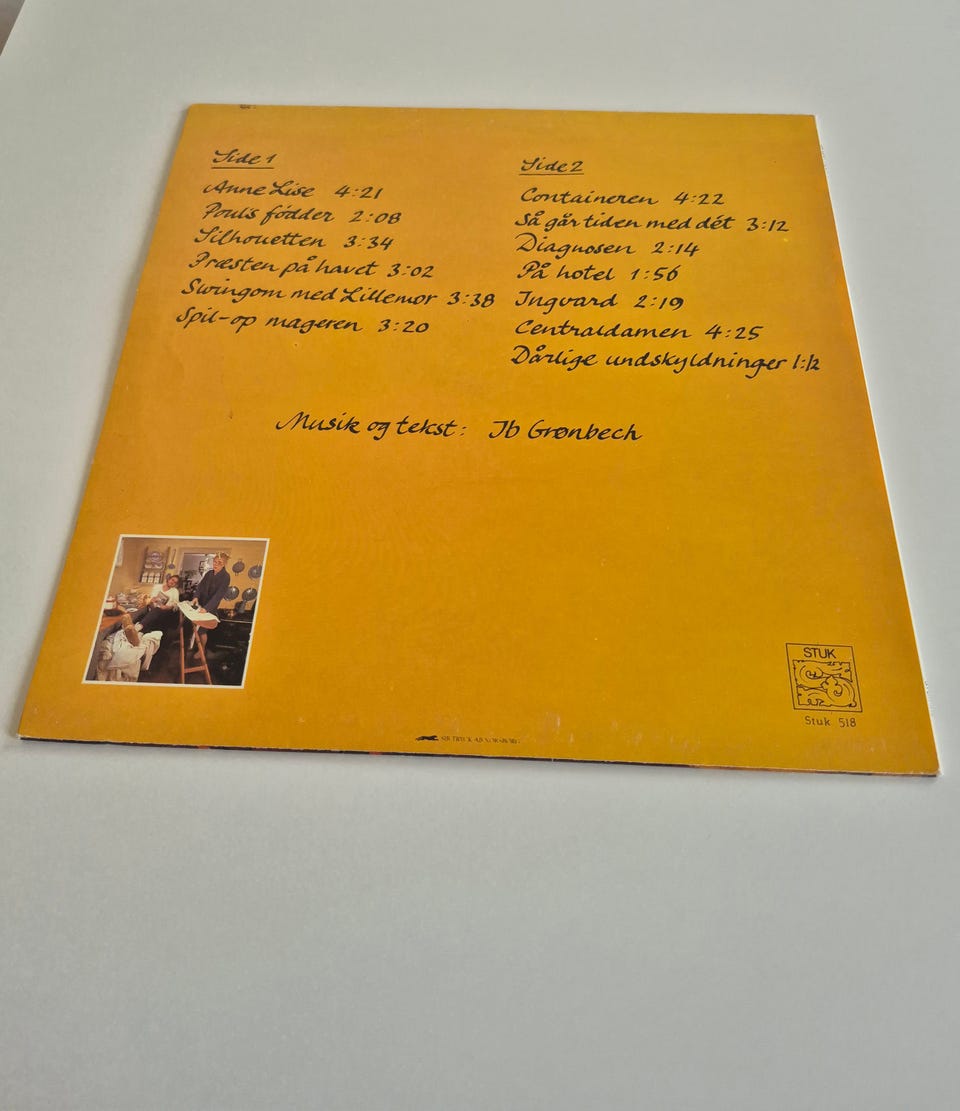 Side 1
Anne Lise 4:21
Pouls födder 2:08
Silhouetten 3:34
Præsten på havet 3:02
Swingom med Lillemor 3:38
Spil-op mageren 3:20
Side 2
Containeren 4:22
Så går tiden med dét 3:12
Diagnosen 2:14
På hotel 1:56
Ingvard 2:19
Centraldamen 4:25
Dårlige undskyldninger 1:12
Musik og tekst: Ib Grønbech
STUK
Stuk 518